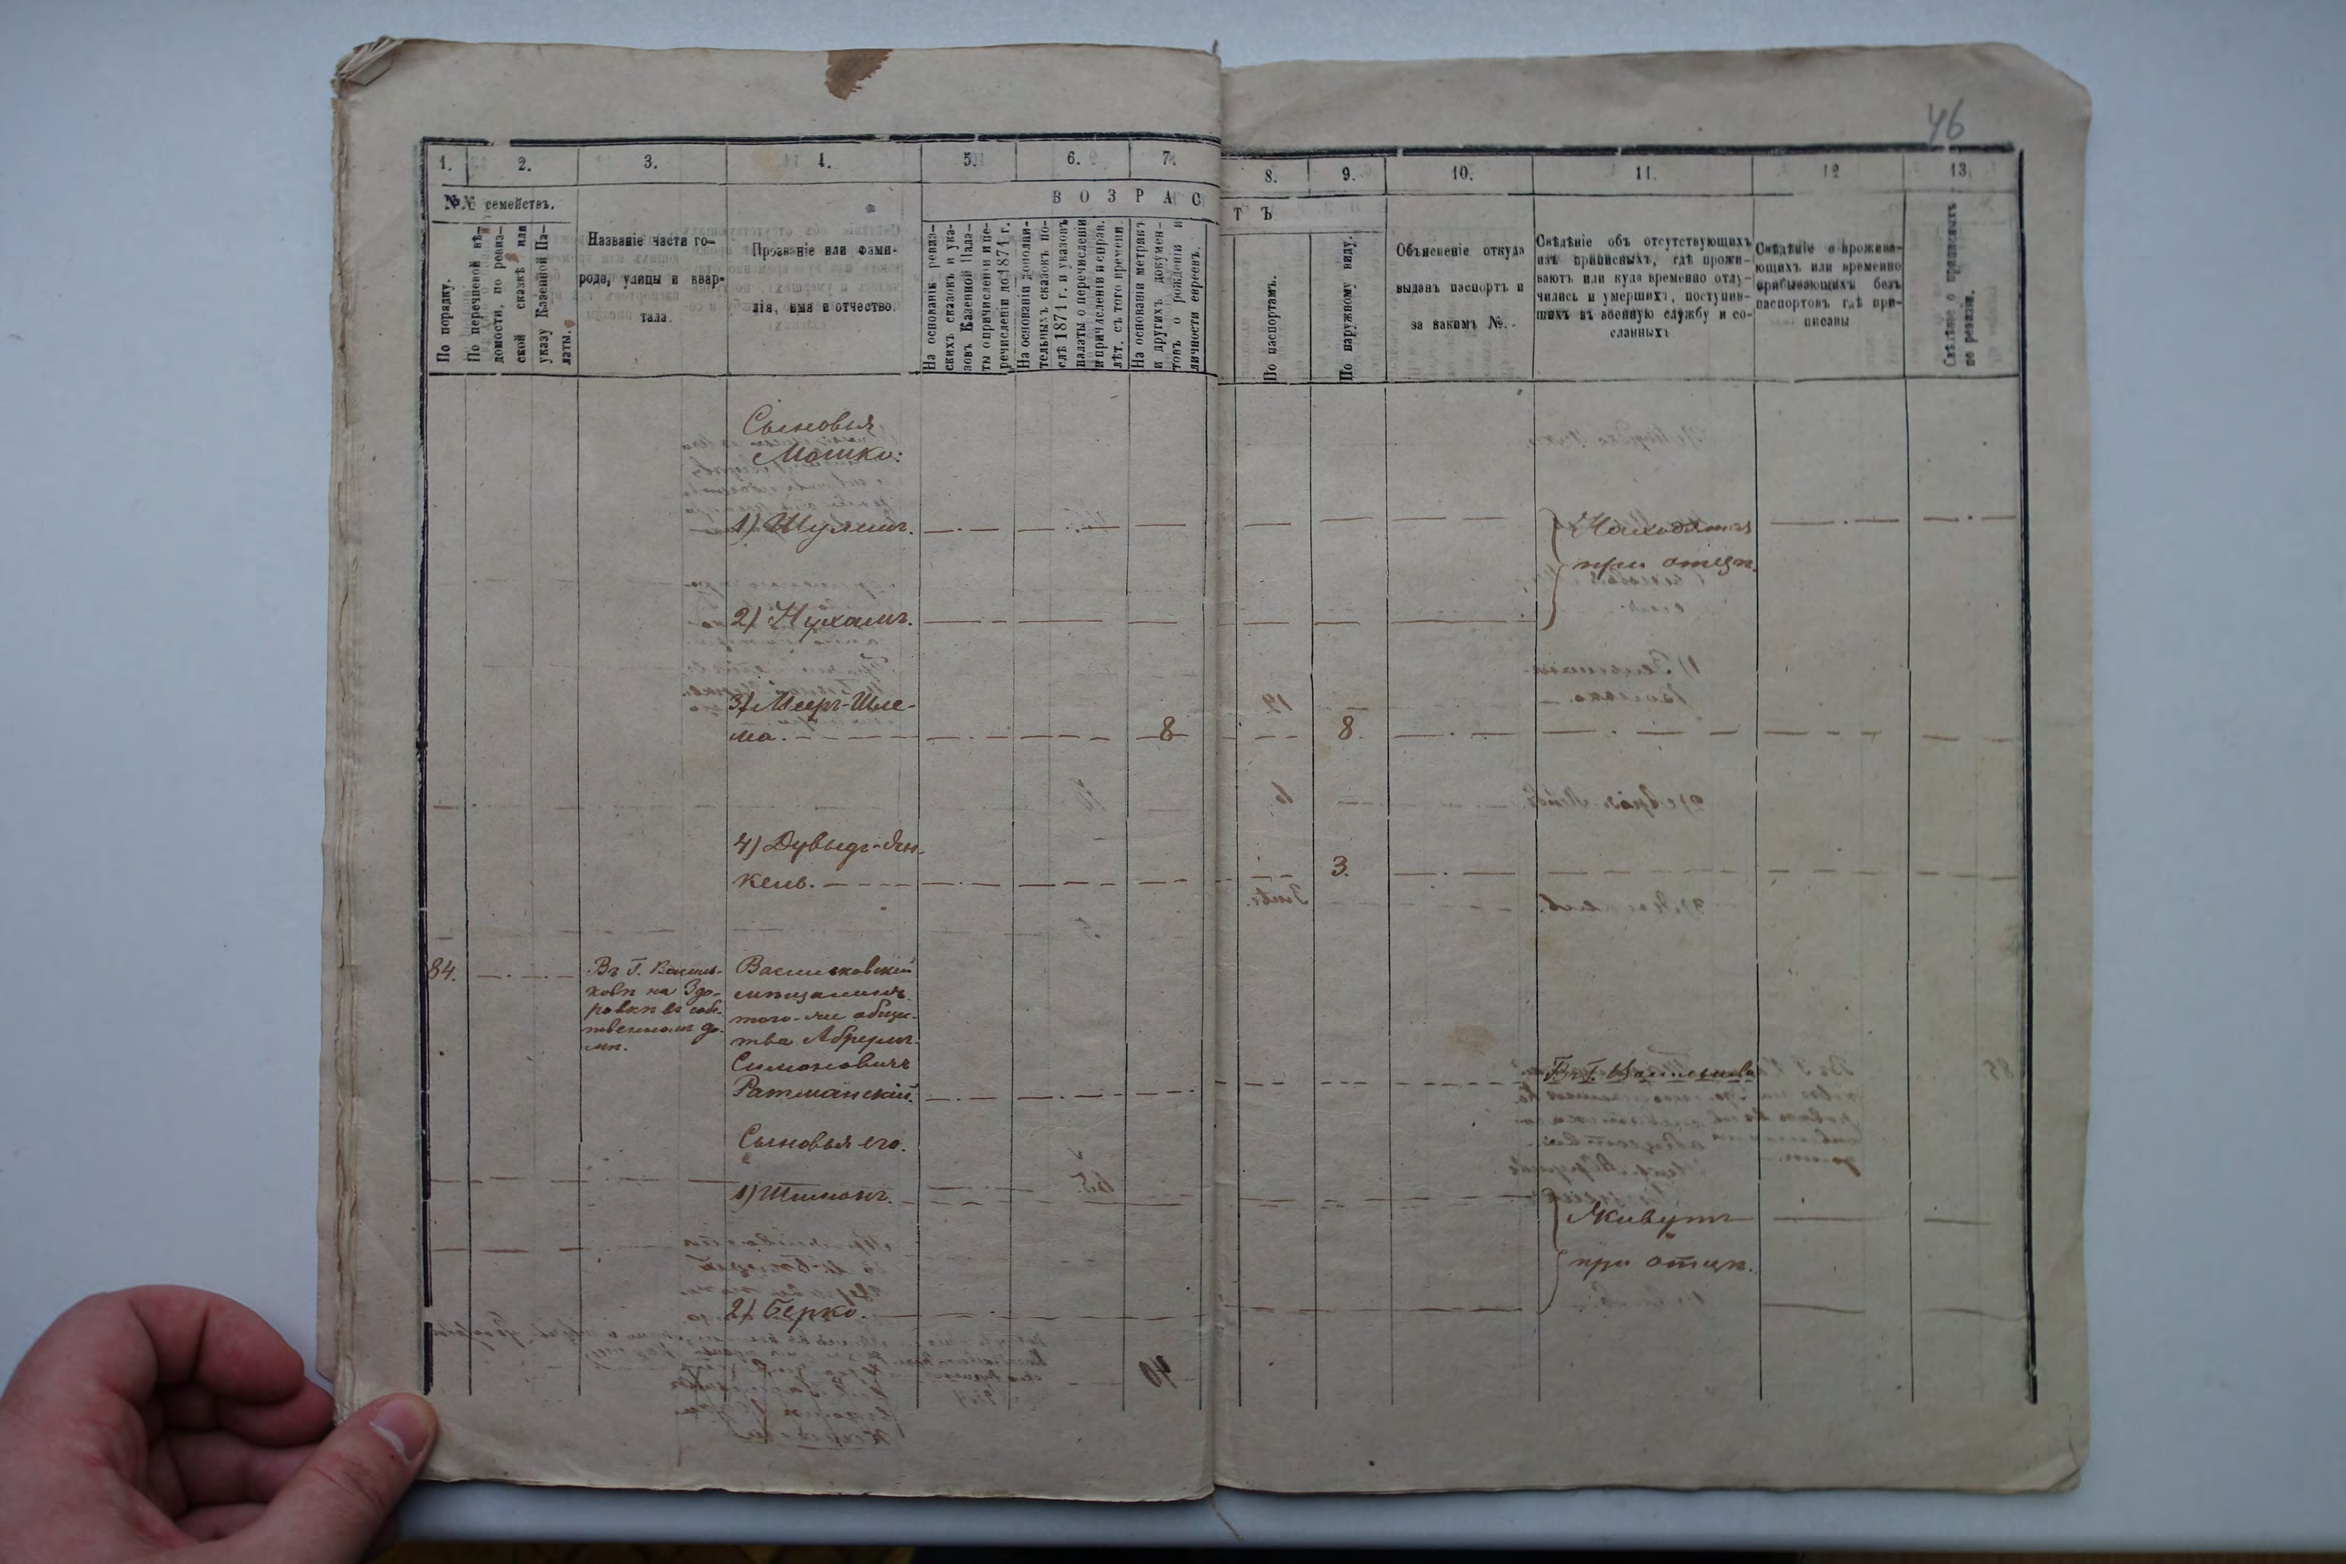 46
1.
2.
3.
4.
5.
6.
7.
8.
9.
10.
11.
12
13.
№№ семействъ.
ВОЗРАС
ТЪ
По порядку.
По перечневой вѣ-
домости, по ревиз-
ской сказкѣ или
указу Казенной Па-
латы.
Названіе части го-
рода, улицы и квар-
тала.
Прозваніе или фами-
лія, имя и отчество.
На основаніи ревиз-
скихъ сказокъ и ука-
зовъ Казенной Пала-
ты о причисленіи и пе-
речисленіи до 1874 г.
На основаніи дополни-
тельныхъ сказокъ по-
слѣ 1874 г. и указовъ
палаты о перечисленіи
и причисленіи и справ.
лѣт. съ того времени.
На основаніи метрикъ
и другихъ докумен-
товъ о рожденіи и
личности евреевъ.
По паспортамъ.
По наружному виду.
Объясненіе откуда
выданъ паспортъ и
за какимъ №.
Свѣдѣніе объ отсутствующихъ
изъ приписныхъ, гдѣ прожи-
ваютъ или куда временно отлу-
чились и умершихъ, поступив-
шихъ въ военную службу и со-
сланныхъ
Свѣдѣніе о прожива-
ющихъ или временно
прибывающихъ безъ
паспортовъ гдѣ при-
писаны
Свѣдѣніе о приписныхъ
по ревизіи.
Сыновья
Мошко:
1) Шулимъ.
Находятся
при отцѣ.
2) Нухамъ.
3) Мееръ-Шле-
ма.
8
8.
4) Дувыдъ-Ян-
кель.
3.
84.
Въ Г. Василь-
ковѣ на Здо-
ровкѣ въ соб-
ственномъ до-
мѣ.
Васильковскій
мѣщанинъ
того-же обще-
тва Абрумъ
Симоновичъ
Ратманскій.
Въ Г. Васильковѣ
Сыновья его.
1) Шимонъ.
Живутъ
при отцѣ.
2) Берко.